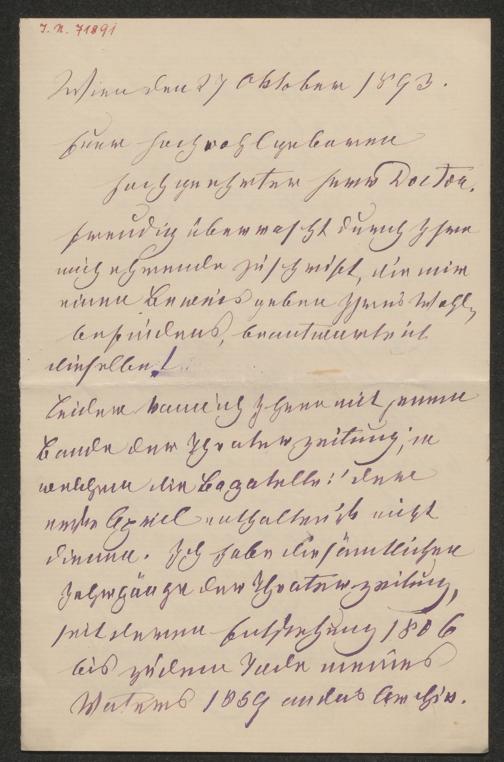 I. N. 71891
Wien den 27 Oktober 1893.
Euer Hochwohlgeboren
Hochgeehrter Herr Doctor.
Freudig überrascht durch Ihre
mich ehrende Zuschrift, die mir
einen Beweis geben Ihres Wohl,
befindens, beantworte ich
dieselbe!
Leider kann ich Ihnen mit jenem
Bande der Theaterzeitung, in
welchem die Bagatelle: der
erste April enthalten ist nicht
dienen. Ich habe die sämtlichen
Jahrgänge der Theaterzeitung,
seit deren Entstehung 1806
bis zu dem Tode meines
Vaters 1859 an das Archiv.